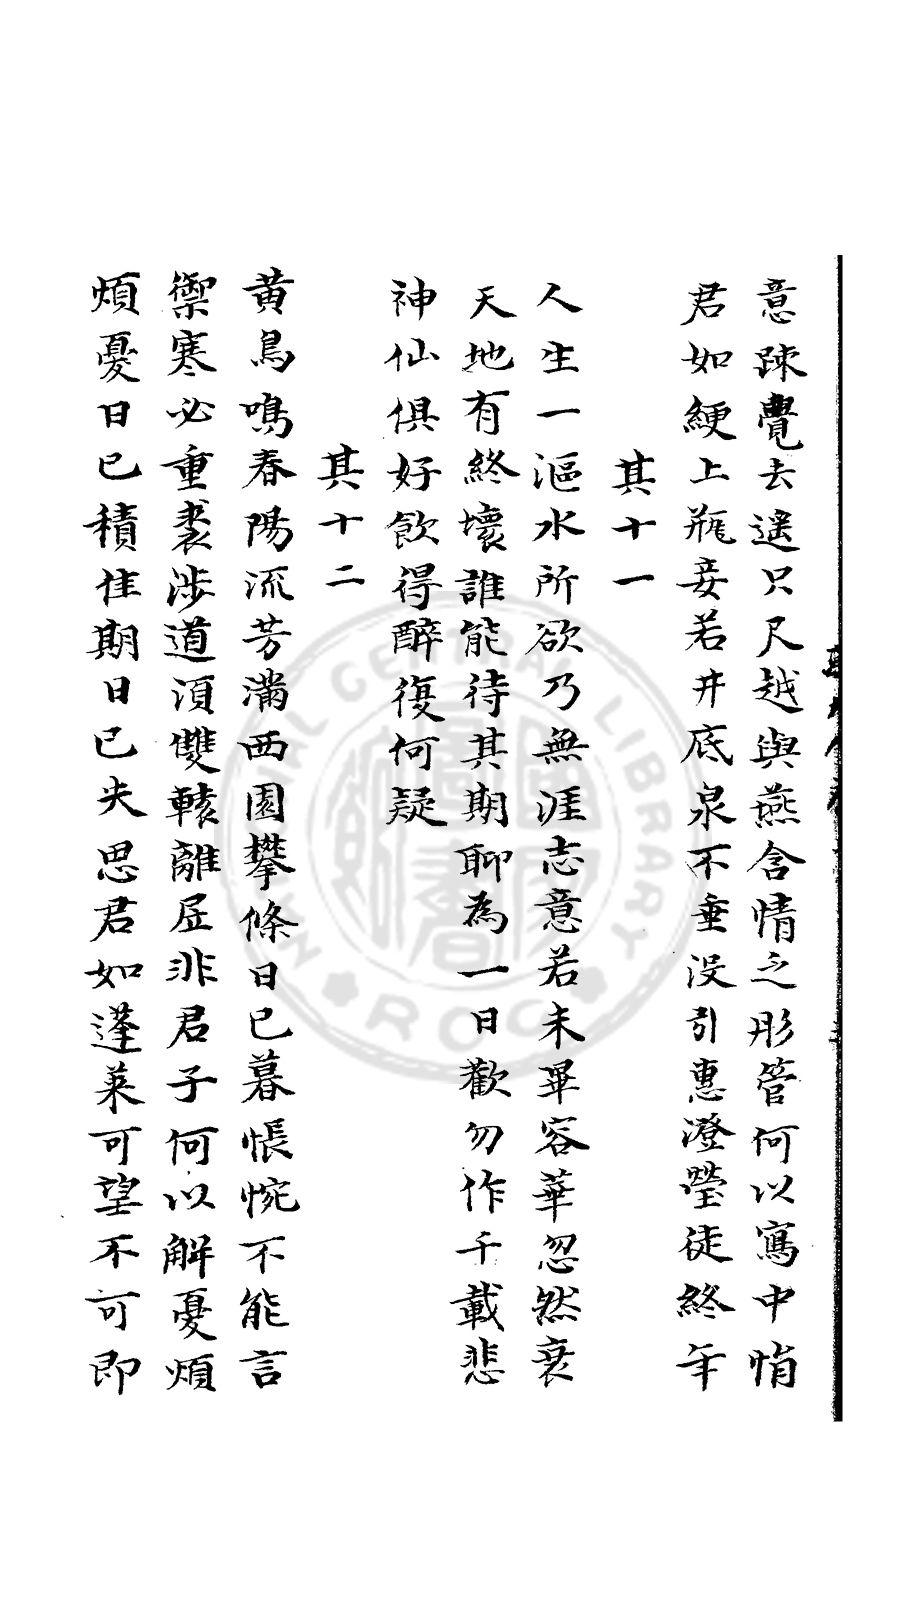 意踈覺去遥只尺越與燕含情之彤管何以寫中悁
君如綆上瓶妾若井底泉不垂没引惠澄瑩徒終年
其十一
人生一漚水所欲乃無涯志意若未畢容華忽然衰
天地有終壞誰能待其期聊為一日歡勿作千載悲
神仙俱好飲得醉復何疑
其十二
黄鳥鳴春陽流芳滿西園攀條日已暮悵惋不能言
禦寒必重裘涉道須雙轅離居非君子何以解憂煩
煩憂日已積佳期日已失思君如蓬萊可望不可即
NATIONAL CENTRAL LIBRARY
ROC